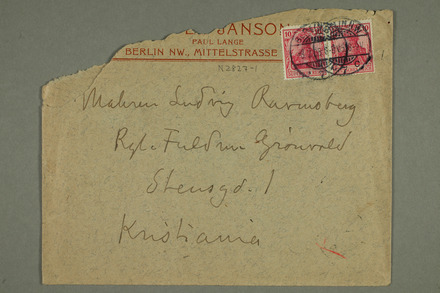 JANSON
PAUL LANGE
BERLIN NW., MITTELSTRASSE
N2827-1
10
Maleren Ludvig Ravensberg
Grönvold
Stensgd. 1
Kristiania